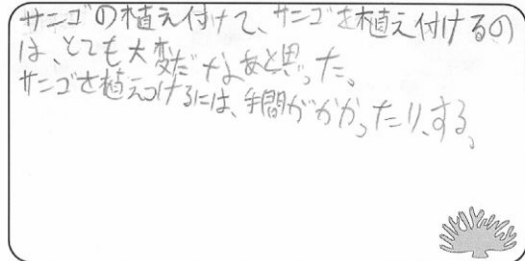 サンゴの植え付けで、サンゴを植え付けるの
は、とても大変だなあと思った。
サンゴを植えつけるには、手間がかかったり、する。